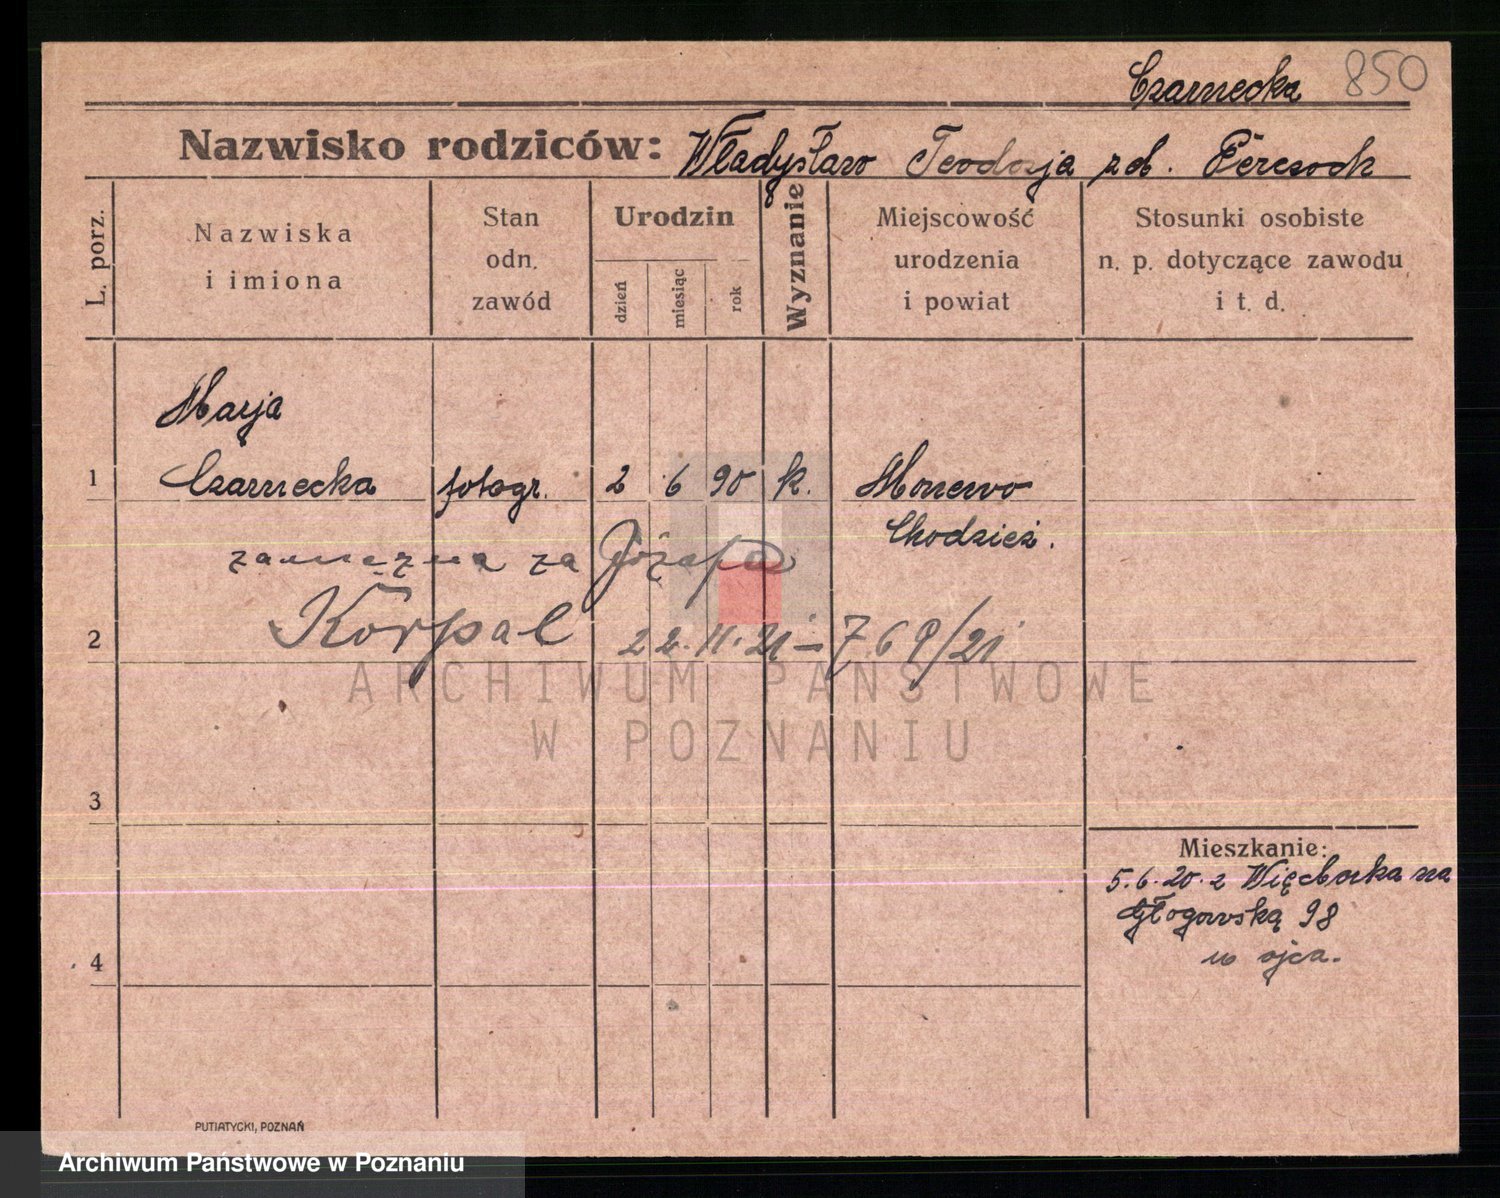 Czarnecka 850
Nazwisko rodziców: Władysław Teodozja zd.
L. porz.
Nazwiska i imiona
Stan odn. zawód
Urodzin
dzień
miesiąc
rok
Wyznanie
Miejscowość urodzenia i powiat
Stosunki osobiste n. p. dotyczące zawodu i t. d.
Marja
1 Czarnecka fotogr. 2 6 90 k. Morzewo
Chodzież.
zamężna za Józefa
2 Körpal 22.11.21 – 769/21
ARCHIWUM PAŃSTWOWE
W POZNANIU
3
Mieszkanie:
5.6.20 z Więcborka na
Głogowską 98
4 u ojca.
PUTIATYCKI, POZNAŃ
Archiwum Państwowe w Poznaniu